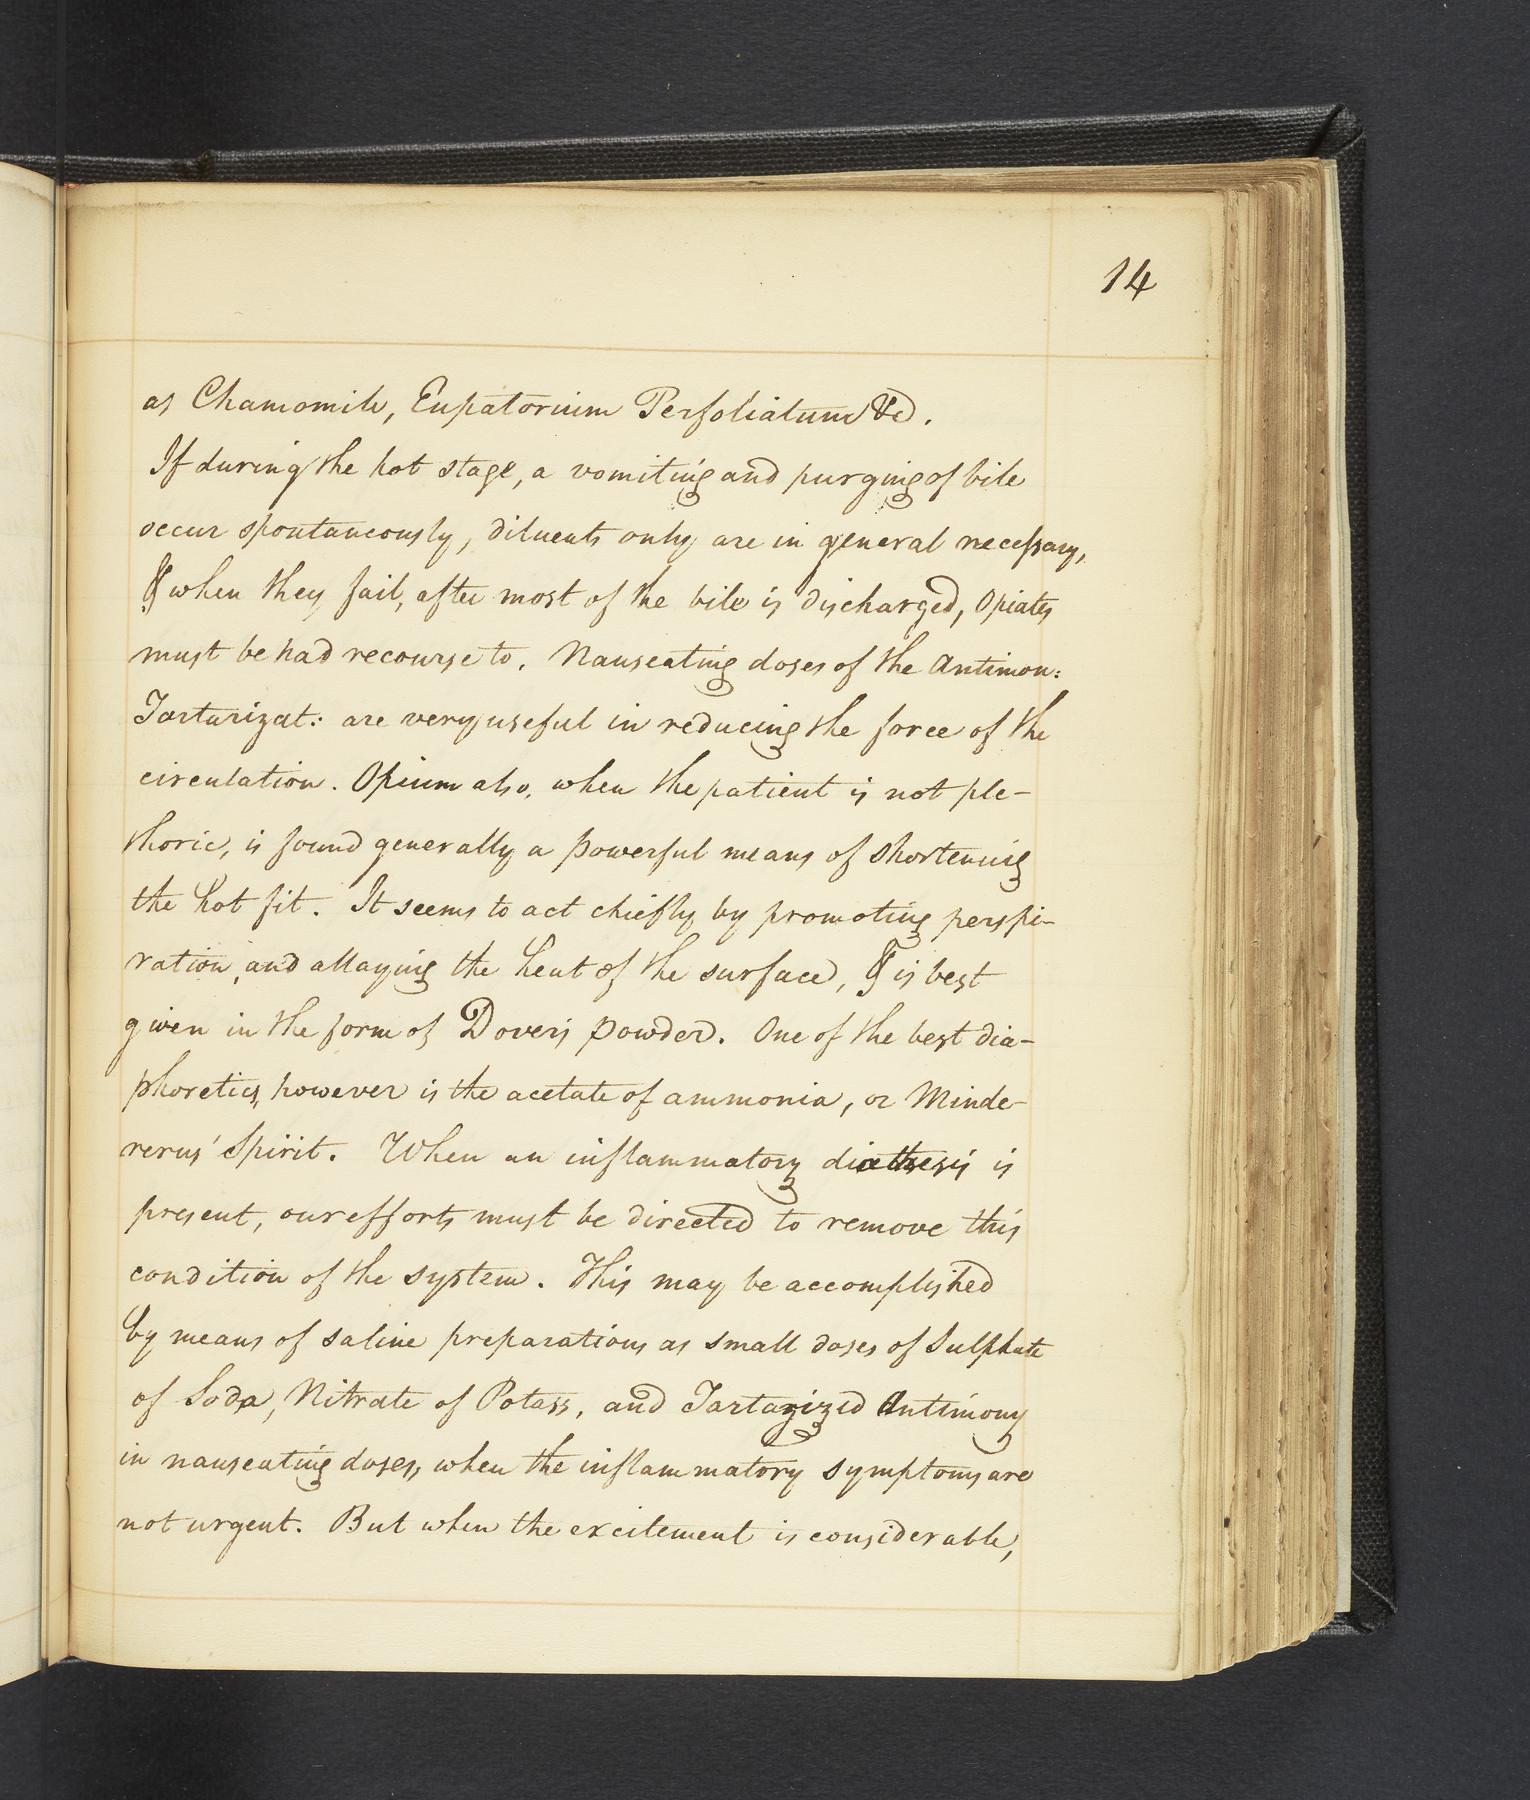 14
as Chamomile, Eupatorium Perfoliatum &c.
If during the hot stage, a vomiting and purging of bile
occur spontaneously, diluents only are in general necessary,
& when they fail, after most of the bile is discharged, Opiates
must be had recourse to. Nauseating doses of the Antimon:
Tartarizat: are very useful in reducing the force of the
circulation. Opium also, when the patient is not ple-
thoric, is found generally a powerful means of shortening
the hot fit. It seems to act chiefly by promoting perspi-
ration, and allaying the heat of the surface, & is best
given in the form of Dover's powder. One of the best dia-
phoretics, however is the acetate of ammonia, or Minde-
rerus' Spirit. When an inflammatory diathesis is
present, our efforts must be directed to remove this
condition of the system. This may be accomplished
by means of saline preparations as small doses of Sulphate
of Soda, Nitrate of Potass, and Tartarized Antimony
in nauseating doses, when the inflammatory symptoms are
not urgent. But when the excitement is considerable,